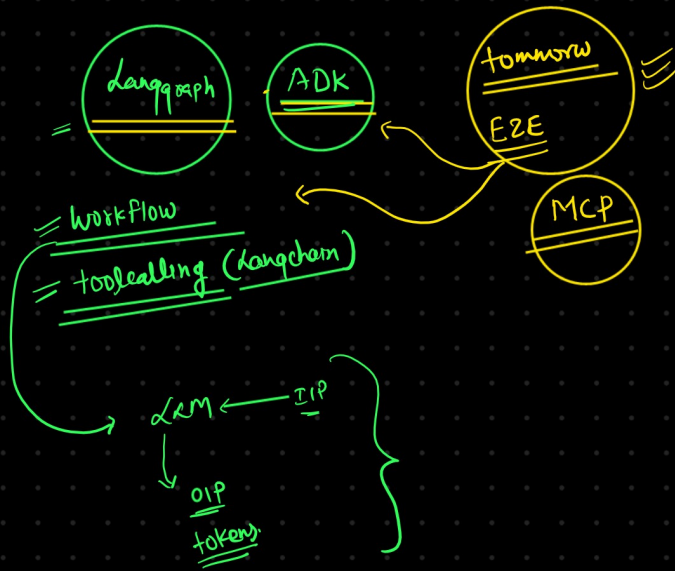 Langgraph
ADK
tommorw
E2E
MCP
Workflow
toolcalling (Langchain)
LRM
I/P
O/P
tokens.